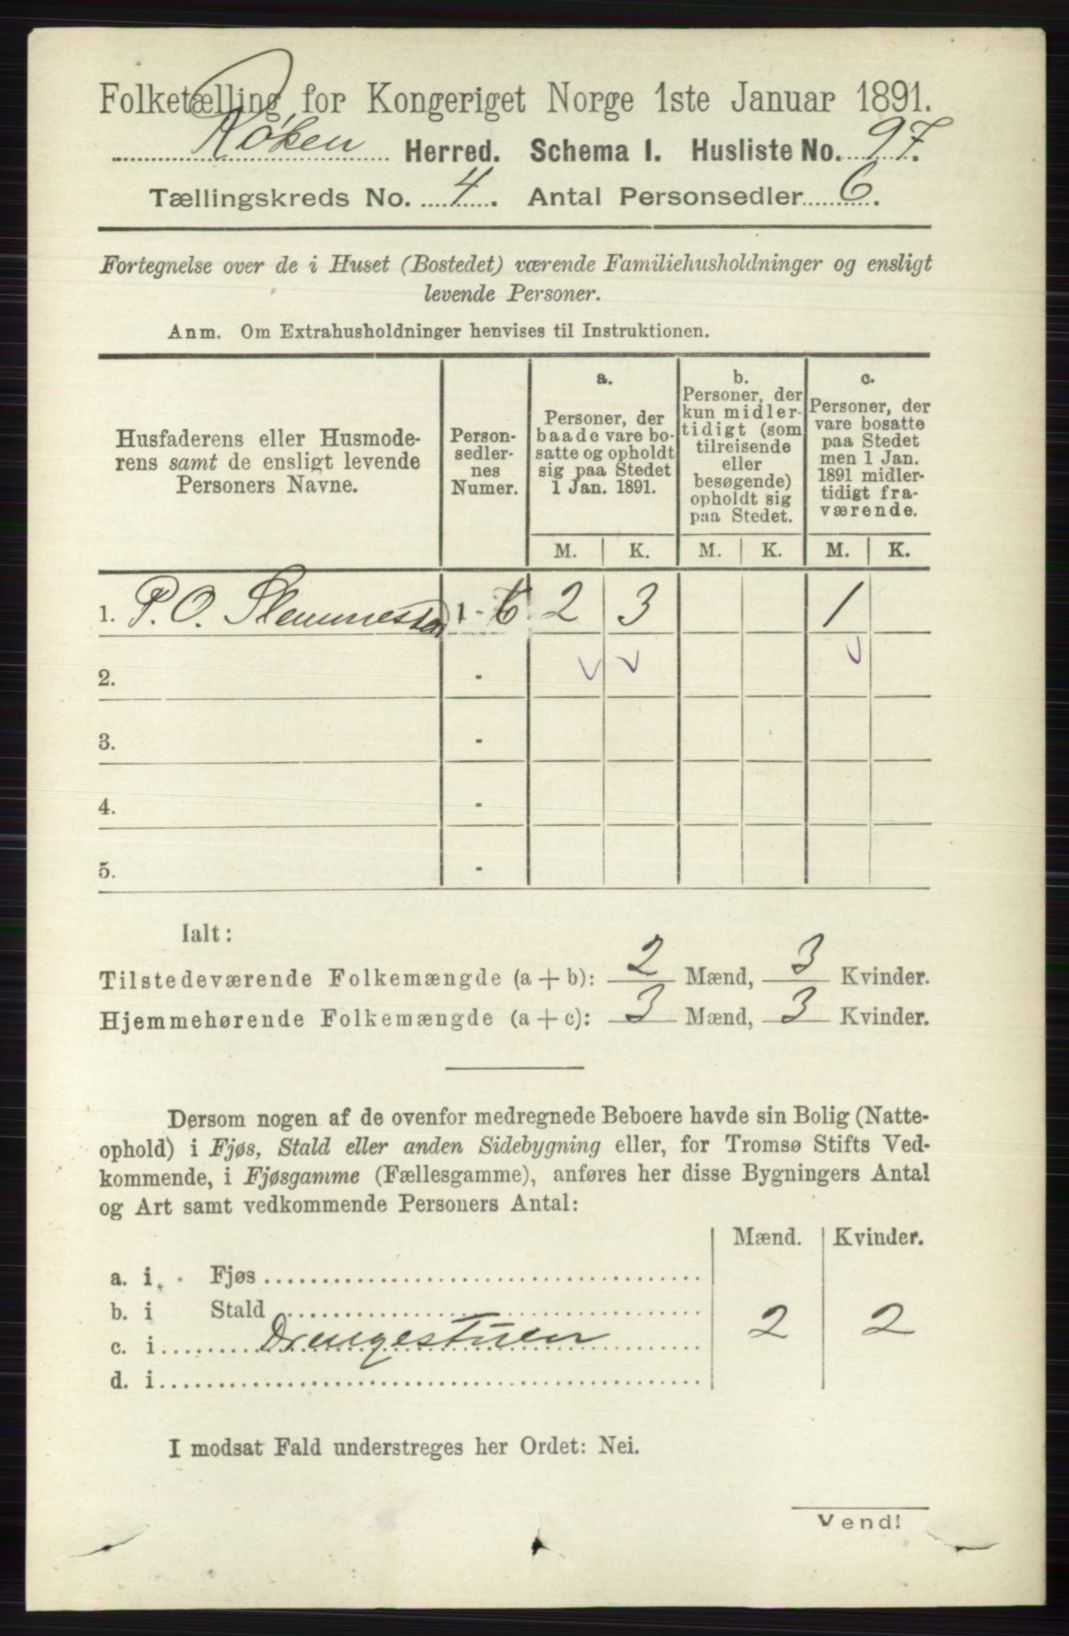 Folketælling for Kongeriget Norge 1ste Januar 1891.
Røken Herred. Schema I. Husliste No. 97.
Tællingskreds No. 4. Antal Personsedler 6.
Fortegnelse over de i Huset (Bostedet) værende Familiehusholdninger og ensligt
levende Personer.
Anm. Om Extrahusholdninger henvises til Instruktionen.
Husfaderens eller Husmode-
rens samt de ensligt levende
Personers Navne.
Person-
sedler-
nes
Numer.
a.
Personer, der
baade vare bo-
satte og opholdt
sig paa Stedet
1 Jan. 1891.
b.
Personer, der
kun midler-
tidigt (som
tilreisende
eller
besøgende)
opholdt sig
paa Stedet.
c.
Personer, der
vare bosatte
paa Stedet
men 1 Jan.
1891 midler-
tidigt fra-
værende.
M. K. M. K. M. K.
1. P. O. Slemmestad 1 - 6 2 3 1
2. -
3. -
4. -
5. -
Ialt:
Tilstedeværende Folkemængde (a + b): 2 Mænd, 3 Kvinder.
Hjemmehørende Folkemængde (a + c): 3 Mænd, 3 Kvinder.
Dersom nogen af de ovenfor medregnede Beboere havde sin Bolig (Natte-
ophold) i Fjøs, Stald eller anden Sidebygning eller, for Tromsø Stifts Ved-
kommende, i Fjøsgamme (Fællesgamme), anføres her disse Bygningers Antal
og Art samt vedkommende Personers Antal:
Mænd. Kvinder.
a. i Fjøs
b. i Stald
c. i Drengestuen 2 2
d. i
I modsat Fald understreges her Ordet: Nei.
Vend!